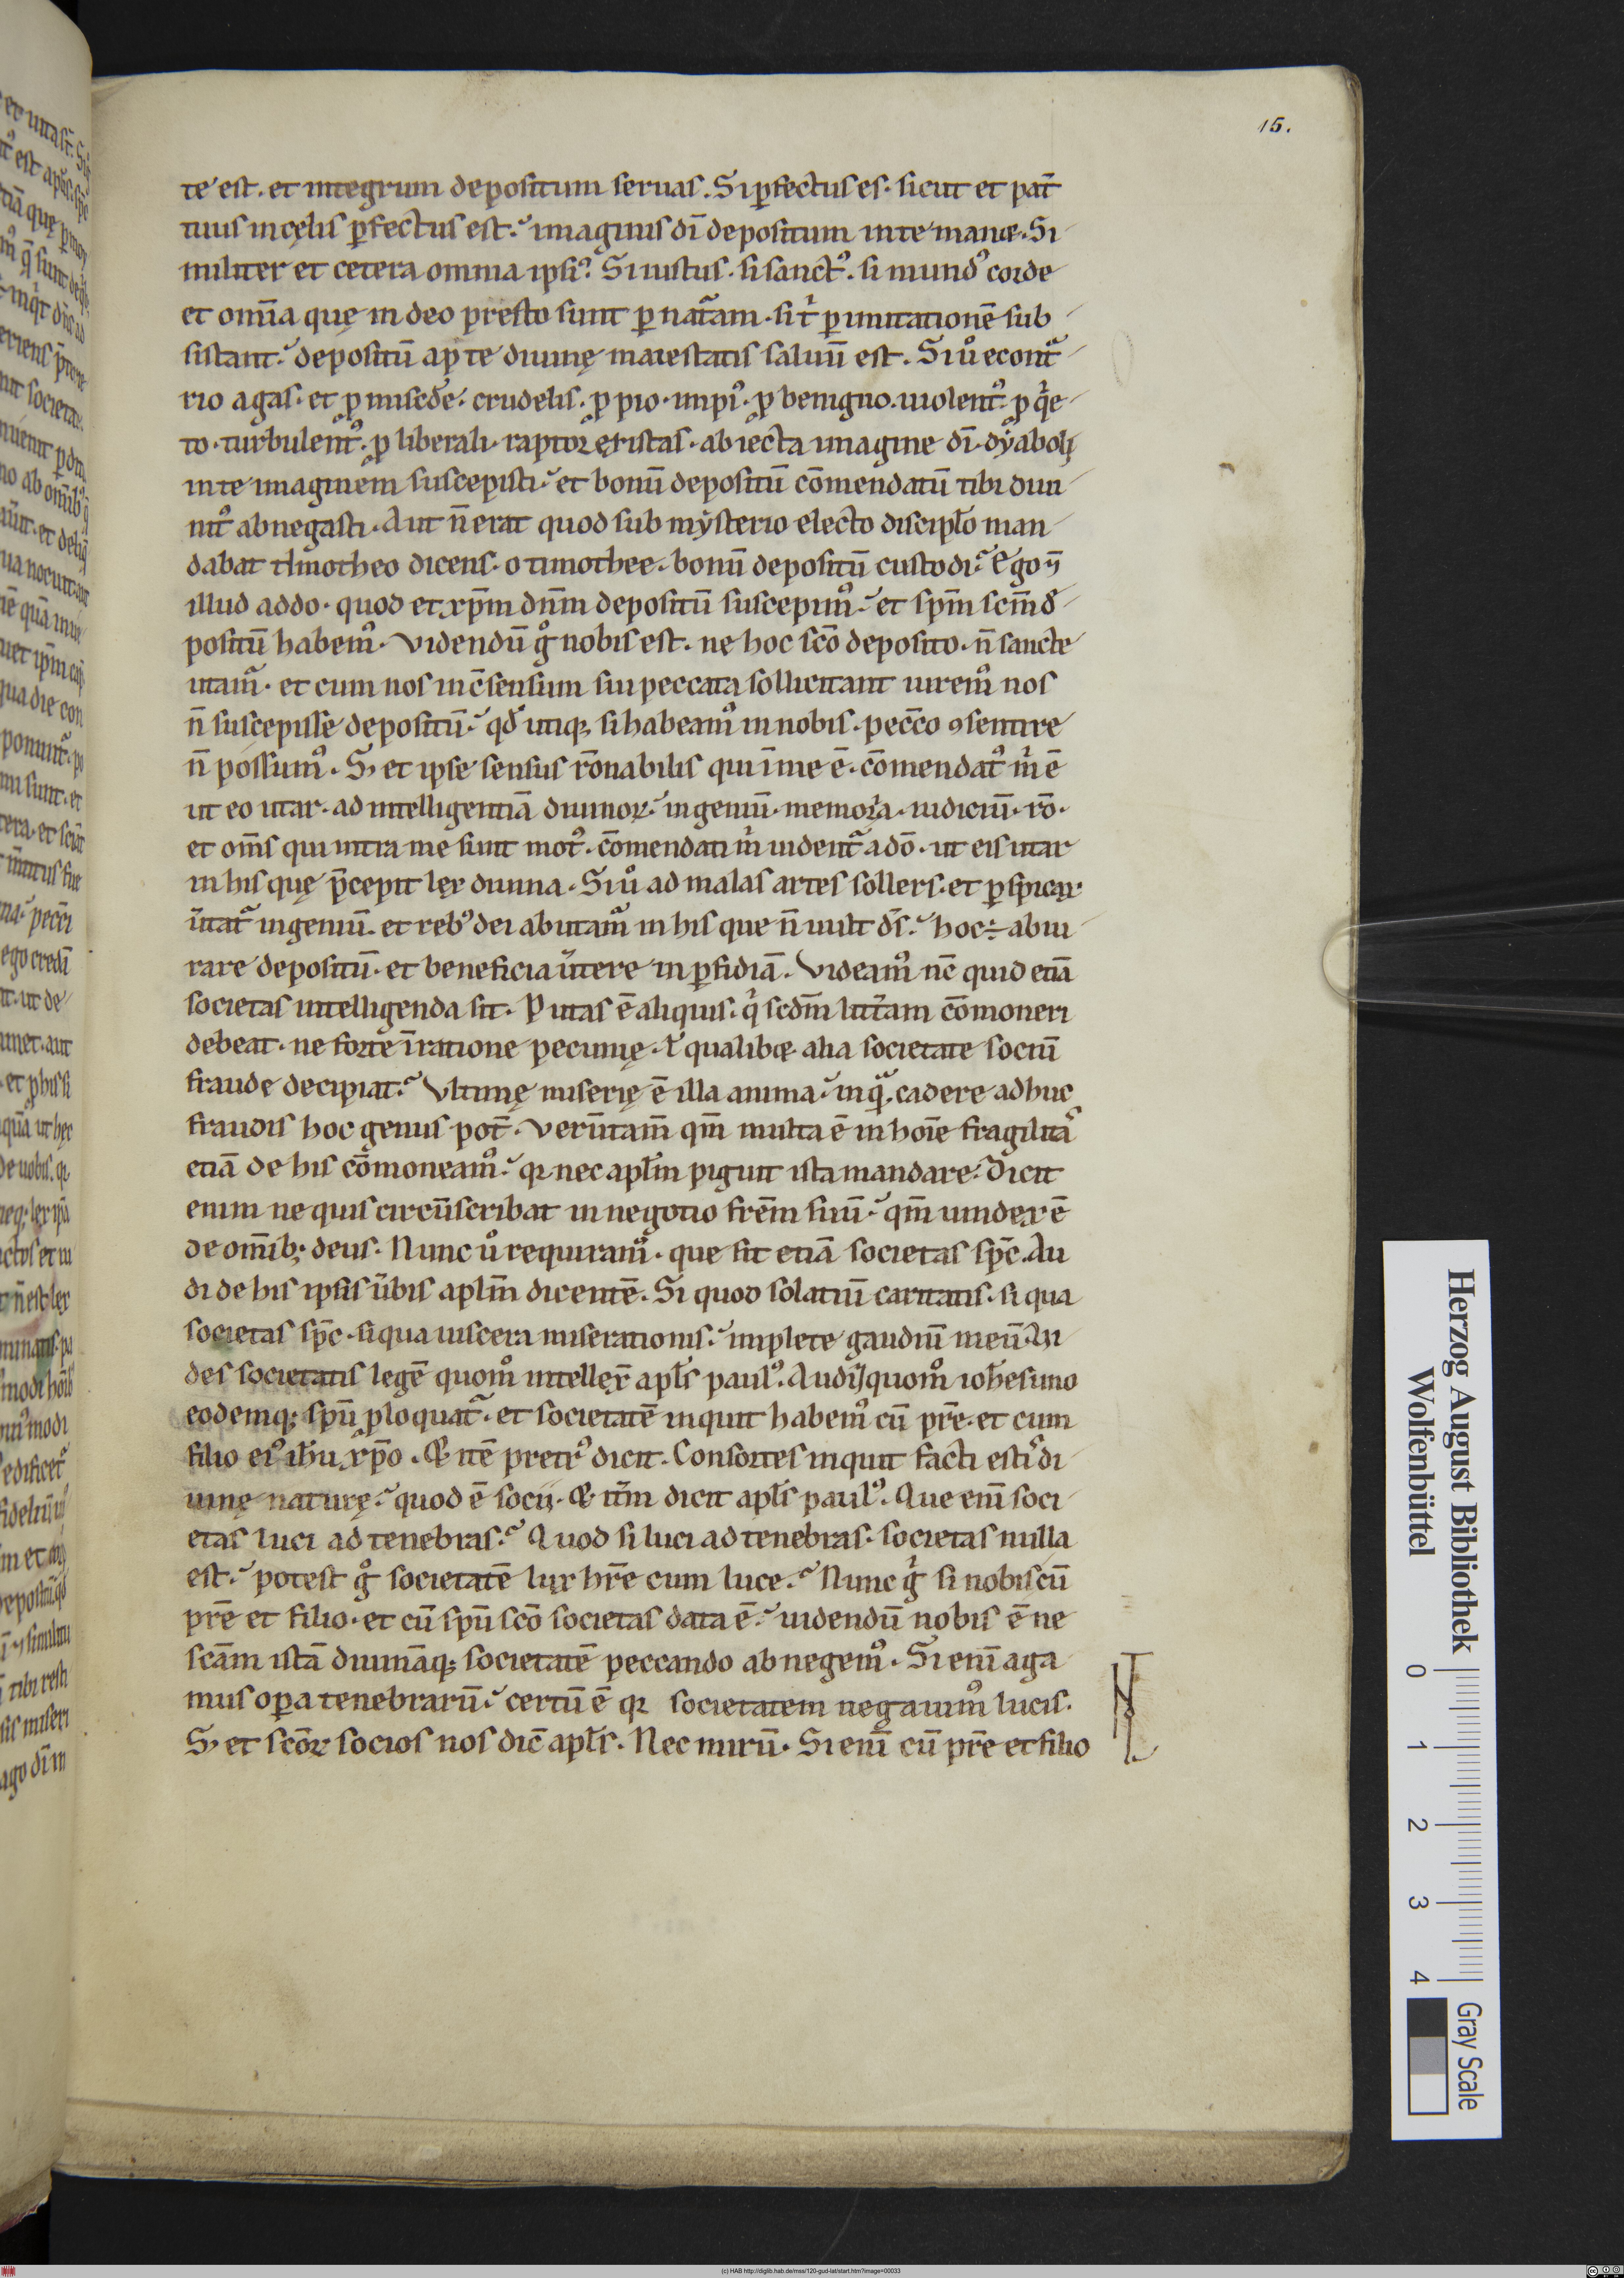 15.
te est. et integrum depositum seruas. Si ꝑfectus es. sicut et pat̄
tuus in cęlis ꝑfectus est. imaginis dī depositum in te manet. Si
militer et cetera omnia ipsiꝰ. Si iustus. si sanctꝰ. si mundꝰ corde
et omīa quę in deo presto sunt per natᵃam. si t̄ ꝑ imitationē sub
sistant. depositū apᵈ te diuinę maiestatis saluū est. Si uͦ econtᵃ
rio agas. et ꝓ miscd̄e. crudelis. ꝓ pio. impiꝰ. ꝓ benigno. uiolentꝰ. ꝓ qͥe
to. turbulentꝰ. ꝓ liberali. raptor existas. abiecta imagine dī. dẏaboli
in te imaginem suscepisti. et bonū depositū cōmendatū tibi diui
nitꝰ abnegasti. Aut n̄ erat quod sub mẏsterio electo discipl̄o man
dabat thimotheo dicens. o timothee. bonū depositū custodi. Ego ⁊
illud addo. quod et xp̄m dn̄m depositū suscepimꝰ. et sp̄m sc̄m đ
positū habemꝰ. Videndū gͦ nobis est. ne hoc sc̄o deposito. n̄ sancte
utamᷣ. et cum nos in c̄sensum sui peccata sollicitant iuremꝰ nos
n̄ suscepisse depositū. qđ utiqꝫ si habeamꝰ in nobis. pecc̄o ꝯsentire
n̄ possumꝰ. Sꝫ et ipse sensus rōnabilis qui ī me ē. cōmendatꝰ mͥ ē
ut eo utar. ad intelligentiā diuinoꝝ. ingeniū. memoria. iudiciū. rō.
et om̄s qui intra me sunt motꝰ. cōmendati mͥ uidentᷣ a dō. ut eis utar
in his quę p̄cepit lex diuina. Si uͦ ad malas artes sollers. et ꝑspicax
ūtatᷣ ingeniū. et rebꝰ dei abutamᷣ in his que n̄ uult d̄s. hoc ÷ abiu
rare depositū. et beneficia ūtere in ꝑfidiā. Videamꝰ nc̄ quid etiā
societas intelligenda sit. Putas ē aliquis. qͥ scd̄m litt̄am cōmoneri
debeat. ne forte ī ratione pecunię. ł qualibet alia societate sociū
fraude decipiat. Vltimę miserię ē illa anima. in qᵃ. cadere adhuc
fraudis hoc genus pot̄. Verūtam̄ qm̄ multa ē in hoīe fragilitas
etiā de his cōmoneamꝰ. qꝛ nec apl̄m piguit ista mandare. Dicit
enim ne quis circūscribat in negotio fr̄em suū. qm̄ uindex ē
de om̄ibꝫ deus. Nunc uͦ requiramꝰ. que sit etiā societas sp̄c. Au
di de his ipsis ūbis apl̄m dicentē. Si quod solatiū caritatis. si qua
societas sp̄c. si qua uiscera miserationis. implete gaudiū meū. Vi
des societatis legē quomͦ intellex̄ apl̄s paulꝰ. Audi quomͦ ioh̄es uno
eodemqꝫ sp̄u ꝓloquatᷣ. et societatē inquit habemꝰ cū pr̄e. et cum
filio eiꝰ ih̄u xp̄o. Et itē petrꝰ dicit. Consortes inquit facti estis di
uinę naturę. quod ē socii. Et it̄m dicit apl̄s paulꝰ. Que enī soci
etas luci ad tenebras. Quod si luci ad tenebras. societas nulla
est. potest gͦ societatē lux hr̄e cum luce. Nunc gͥ si nobiscū
pr̄e et filio. et cū sp̄u sc̄o societas data ē. uidendū nobis ē ne
sc̄am istā diuināqꝫ societatē peccando abnegemꝰ. Si enī aga
mus opꝑa tenebrarū. certū ē qꝛ societatem negauimꝰ lucis.
Sꝫ et sc̄oꝝ socios nos dic̄ apl̄s. Nec mirū. Si enī cū pr̄e et filio
Herzog August Bibliothek
Wolfenbüttel
0 1 2 3 4
Gray Scale
(c) HAB http://diglib.hab.de/mss/120-gud-lat/start.htm?image=00033